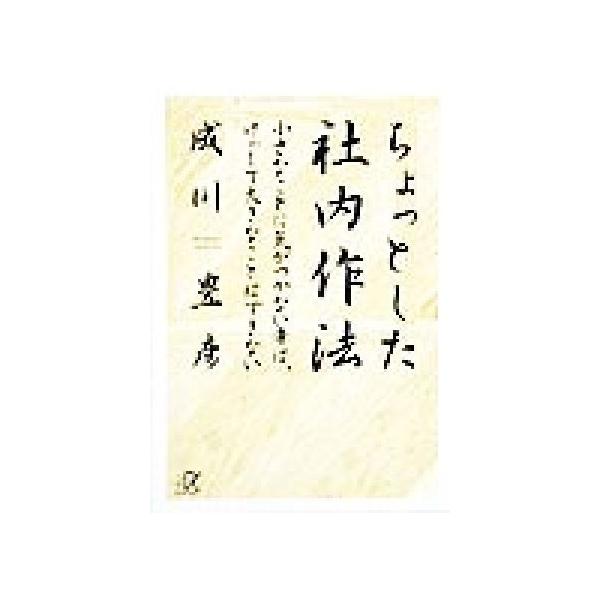 ちょっとした
社内作法
小さなことに気がつかない者は、
決して大きなことはできない。
成川豊彦